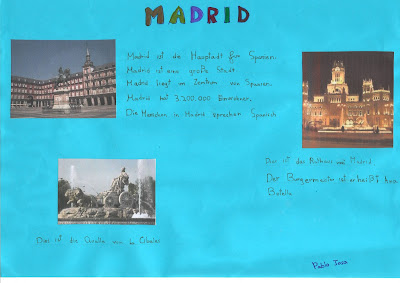 MADRID
Madrid ist die Hauptadt from Spanien.
Madrid ist eine große Stadt.
Madrid liegt im Zentrum von Spanien.
Madrid hat 3.200.000 Einwohner.
Die Menschen in Madrid sprechen Spanisch
Das ist das Rathaus von Madrid
Der Bürgermeister ist er heißt
Botella
Das ist die Cibeles
Pablo